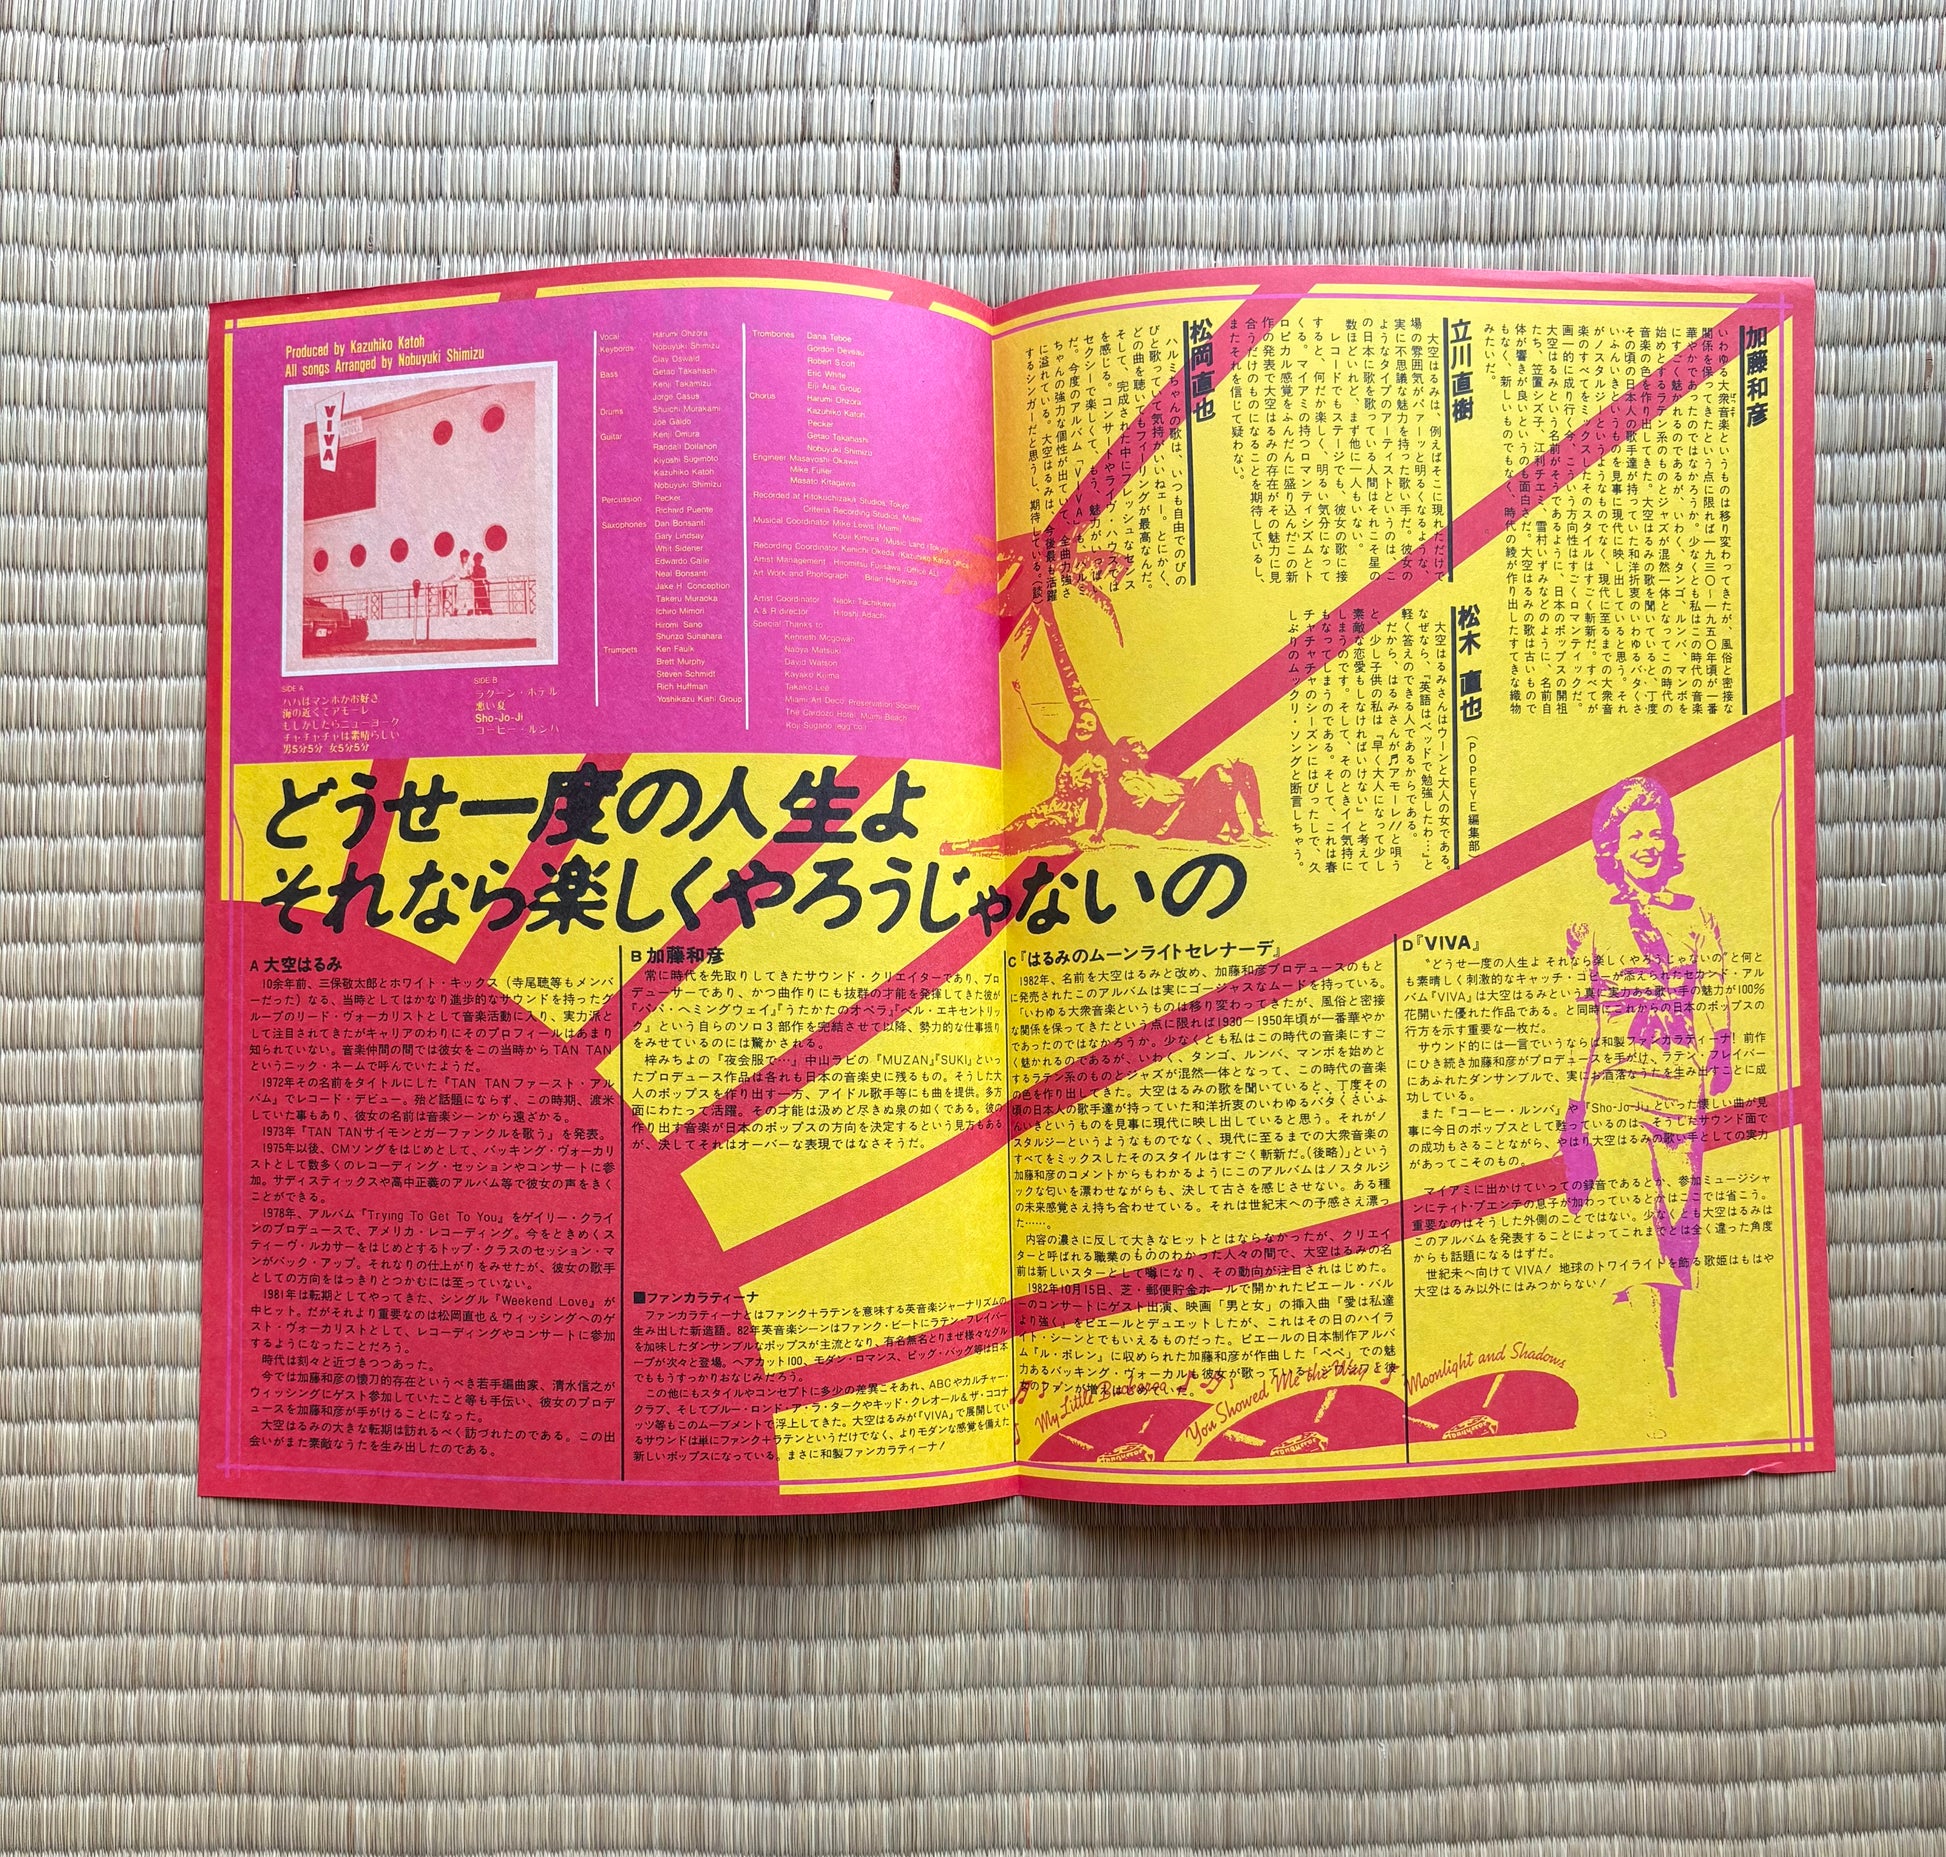 Produced by Kazuhiko Katoh
All songs Arranged by Nobuyuki Shimizu
VIVA
SIDE A
ハハはマンボがお好き
海の近くでアモーレ
もしかしたらニューヨーク
チャチャチャは素晴らしい
男5分5分 女5分5分
SIDE B
ラクーン・ホテル
悪い夏
Sho-Jo-Ji
コーヒー・ルンバ
Vocal Harumi Ohzora
Keybords Nobuyuki Shimizu
Clay Oswald
Bass Getao Takahashi
Kenji Takamizu
Jorge Casus
Drums Shuichi Murakami
Joe Galdo
Guitar Kenji Omura
Randall Dollahon
Kiyoshi Sugimoto
Kazuhiko Katoh
Nobuyuki Shimizu
Percussion Pecker
Richard Puente
Saxophones Dan Bonsanti
Gary Lindsay
Whit Sidener
Edwardo Calle
Neal Bonsanti
Jake H. Conception
Takeru Muraoka
Ichiro Mimori
Hiromi Sano
Shunzo Sunahara
Trumpets Ken Faulk
Brett Murphy
Steven Schmidt
Rich Huffman
Yoshikazu Kishi Group
Trombones Dana Teboe
Gordon Deveau
Robert Scott
Eric White
Eiji Arai Group
Chorus Harumi Ohzora
Kazuhiko Katoh
Pecker
Getao Takahashi
Nobuyuki Shimizu
Engineer Masayoshi Okawa
Mike Fuller
Masato Kitagawa
Recorded at Hitokuchizaka Studios, Tokyo
Criteria Recording Studios, Miami
Musical Coordinator Mike Lewis (Miami)
Kouji Kimura (Music Land (Tokyo)
Recording Coordinator Kenichi Okeda (Kazuhiko Katoh Office)
Artist Management Hiromitsu Fujisawa (Office AU)
Art Work and Photograph Brian Hagiwara
Artist Coordinator Naoki Tachikawa
A & R director Hitoshi Adachi
Special Thanks to
Kenneth Mcgowan
Naoya Matsuki
David Watson
Kayako Kojima
Takako Lee
Miami Art Deco Preservation Society
The Cardozo Hotel Miami Beach
Koji Sugano (egg con)
加藤和彦
いわゆる大衆音楽というものは移り変わってきたが、風俗と密接な
関係を保ってきたという点に限れば一九三〇〜一九五〇年頃が一番
華やかであったのではなかろうか。少なくとも私はこの時代の音楽
にすごく魅かれるのであるが、いわく、タンゴ、ルンバ、マンボを
始めとするラテン系のものとジャズが混然一体となってこの時代の
音楽の色を作り出してきた。大空はるみの歌を聞いていると、丁度
その頃の日本人の歌手達が持っていた和洋折衷のいわゆるバタくさ
いふんいきというものを見事に現代に映し出していると思う。それ
がノスタルジーというようなものでなく、現代に至るまでの大衆音
楽のすべてをミックスしたそのスタイルはすごく斬新だ。すべてが
画一的に成り行く今、こういう方向性はすごくロマンティックだ。
大空はるみという名前がそうであるように、日本のポップスの開祖
たち、笠置シズ子、江利チエミ、雪村いづみなどのように、名前自
体が響きが良いというのも面白さだ。大空はるみの歌は古いもので
もなく、新しいものでもなく、時代の綾が作り出したすてきな織物
みたいだ。
立川直樹
大空はるみは、例えばそこに現れただけで
場の雰囲気がパァーッと明るくなるような、
実に不思議な魅力を持った歌い手だ。彼女の
ようなタイプのアーティストというのは、こ
の日本に歌を歌っている人間はそれこそ星の
数ほどいれど、まず他に一人もいない。
レコードでもステージでも、彼女の歌に接
すると、何だか楽しく、明るい気分になって
くる。マイアミの持つロマンティシズムとト
ロピカル感覚をふんだんに盛り込んだこの新
作の発表で大空はるみの存在がその魅力に見
合うだけのものになることを期待しているし、
またそれを信じて疑わない。
松岡直也
ハルミちゃんの歌は、いつも自由でのびの
びと歌っていて気持がいいねェー。とにかく、
どの曲を聴いてもフィーリングが最高なんだ。
そして、完成された中にフレッシュなセンス
を感じる。コンサートやライヴ・ハウスでは
セクシーで楽しくて、もう、魅力がいっぱい
だ。今度のアルバム「VIVA」も、ハルミ
ちゃんの強力な個性が出ていて、全曲力強さ
に溢れている。大空はるみは、今後最も活躍
するシンガーだと思うし、期待している。(談)
松木直也(POPEYE編集部)
大空はるみさんはウーンと大人の女である。
なぜなら、『英語はベッドで勉強したわ…』と
軽く答えのできる人であるからである。
だから、はるみさんが♬アモーレ//と唄う
と、少し子供の私は『早く大人になって少し
素敵な恋愛もしなければいけない』と考えて
しまうのです。そして、そのときイイ気持に
もなってしまうのである。そして、これは春
チャチャチャのシーズンにはぴったしで、久
しぶりのムックリ・ソングと断言しちゃう。
どうせ一度の人生よ
それなら楽しくやろうじゃないの
A 大空はるみ
10余年前、三保敬太郎とホワイト・キックス(寺尾聰等もメンバ
ーだった)なる、当時としてはかなり進歩的なサウンドを持ったグ
ループのリード・ヴォーカリストとして音楽活動に入り、実力派と
して注目されてきたがキャリアのわりにそのプロフィールはあまり
知られていない。音楽仲間の間では彼女をこの当時からTAN TAN
というニック・ネームで呼んでいたようだ。
1972年その名前をタイトルにした『TAN TANファースト・アル
バム』でレコード・デビュー。殆ど話題にならず、この時期、渡米
していた事もあり、彼女の名前は音楽シーンから遠ざかる。
1973年『TAN TANサイモンとガーファンクルを歌う』を発表。
1975年以後、CMソングをはじめとして、バッキング・ヴォーカリ
ストとして数多くのレコーディング・セッションやコンサートに参
加。サディスティックスや高中正義のアルバム等で彼女の声をきく
ことができる。
1978年、アルバム『Trying To Get To You』をゲイリー・クライ
ンのプロデュースで、アメリカ・レコーディング。今をときめくス
ティーヴ・ルカサーをはじめとするトップ・クラスのセッション・マ
ンがバック・アップ。それなりの仕上がりをみせたが、彼女の歌手
としての方向をはっきりとつかむには至っていない。
1981年は転期としてやってきた、シングル『Weekend Love』が
中ヒット。だがそれより重要なのは松岡直也&ウィッシングへのゲ
スト・ヴォーカリストとして、レコーディングやコンサートに参加
するようになったことだろう。
時代は刻々と近づきつつあった。
今では加藤和彦の懐刀的存在というべき若手編曲家、清水信之が
ウィッシングにゲスト参加していたこと等も手伝い、彼女のプロデ
ュースを加藤和彦が手がけることになった。
大空はるみの大きな転期は訪れるべく訪づれたのである。この出
会いがまた素敵なうたを生み出したのである。
B 加藤和彦
常に時代を先取りしてきたサウンド・クリエイターであり、プロ
デューサーであり、かつ曲作りにも抜群の才能を発揮してきた彼が
『パパ・ヘミングウェイ』『うたかたのオペラ』『ベル・エキセントリッ
ク』という自らのソロ3部作を完結させて以降、勢力的な仕事振り
をみせているのには驚かされる。
梓みちよの『夜会服で…』中山ラビの『MUZAN』『SUKI』といっ
たプロデュース作品は各れも日本の音楽史に残るもの。そうした大
人のポップスを作り出す一方、アイドル歌手等にも曲を提供。多方
面にわたって活躍。その才能は汲めど尽きぬ泉の如くである。彼の
作り出す音楽が日本のポップスの方向を決定するという見方もある
が、決してそれはオーバーな表現ではなさそうだ。
■ファンカラティーナ
ファンカラティーナとはファンク+ラテンを意味する英音楽ジャーナリズムの
生み出した新造語。82年英音楽シーンはファンク・ビートにラテン・フレイバー
を加味したダンサンブルなポップスが主流となり、有名無名とりまぜ様々なグル
ープが次々と登場。ヘアカット100、モダン・ロマンス、ピッグ・バッグ等は日本
でももうすっかりおなじみだろう。
この他にもスタイルやコンセプトに多少の差異こそあれ、ABCやカルチャー・
クラブ、そしてブルー・ロンド・ア・ラ・タークやキッド・クレオール&ザ・ココナ
ッツ等もこのムーブメントで浮上してきた。大空はるみが『VIVA』で展開してい
るサウンドは単にファンク+ラテンというだけでなく、よりモダンな感覚を備えた
新しいポップスになっている。まさに和製ファンカラティーナ!
C『はるみのムーンライトセレナーデ』
1982年、名前を大空はるみと改め、加藤和彦プロデュースのもと
に発売されたこのアルバムは実にゴージャスなムードを持っている。
「いわゆる大衆音楽というものは移り変わってきたが、風俗と密接
な関係を保ってきたという点に限れば1930―1950年頃が一番華やか
であったのではなかろうか。少なくとも私はこの時代の音楽にすご
く魅かれるのであるが、いわく、タンゴ、ルンバ、マンボを始めと
するラテン系のものとジャズが混然一体となって、この時代の音楽
の色を作り出してきた。大空はるみの歌を聞いていると、丁度その
頃の日本人の歌手達が持っていた和洋折衷のいわゆるバタくさいふ
んいきというものを見事に現代に映し出していると思う。それがノ
スタルジーというようなものでなく、現代に至るまでの大衆音楽の
すべてをミックスしたそのスタイルはすごく斬新だ。(後略)」という
加藤和彦のコメントからもわかるようにこのアルバムはノスタルジ
ックな匂いを漂わせながらも、決して古さを感じさせない。ある種
の未来感覚さえ持ち合わせている。それは世紀末への予感さえ漂っ
た……。
内容の濃さに反して大きなヒットとはならなかったが、クリエイ
ターと呼ばれる職業のもののわかった人々の間で、大空はるみの名
前は新しいスターとして噂になり、その動向が注目されはじめた。
1982年10月15日、芝・郵便貯金ホールで開かれたピエール・バル
ーのコンサートにゲスト出演、映画「男と女」の挿入曲『愛は私達
より強く』をピエールとデュエットしたが、これはその日のハイラ
イト・シーンとでもいえるものだった。ピエールの日本制作アルバ
ム『ル・ポレン』に収められた加藤和彦が作曲した「ペペ」での魅
力あるバッキング・ヴォーカルも彼女が歌っている
D『VIVA』
"どうせ一度の人生よ それなら楽しくやろうじゃないの"と何と
も素晴しく刺激的なキャッチ・コピーが添えられたセカンド・アル
バム『VIVA』は大空はるみという真に実力ある歌い手の魅力が100%
花開いた優れた作品である。と同時にこれからの日本のポップスの
行方を示す重要な一枚だ。
サウンド的には一言でいうならば和製ファンカラティーナ!前作
にひき続き加藤和彦がプロデュースを手がけ、ラテン・フレイバー
にあふれたダンサンブルで、実にお洒落なうたを生み出すことに成
功している。
また『コーヒー・ルンバ』や『Sho-Jo-Ji』といった懐しい曲が見
事に今日のポップスとして甦っているのは、そうしたサウンド面で
の成功もさることながら、やはり大空はるみの歌い手としての実力
があってこそのもの。
マイアミに出かけていっての録音であるとか、参加ミュージシャ
ンにティト・プエンテの息子が加わっているとかはここでは省こう。
重要なのはそうした外側のことではない。少なくとも大空はるみは
このアルバムを発表することによってこれまでとは全く違った角度
からも話題になるはずだ。
世紀末へ向けてVIVA!地球のトワイライトを飾る歌姫はもはや
大空はるみ以外にはみつからない!
My Little
You Showed Me the Way
Moonlight and Shadows